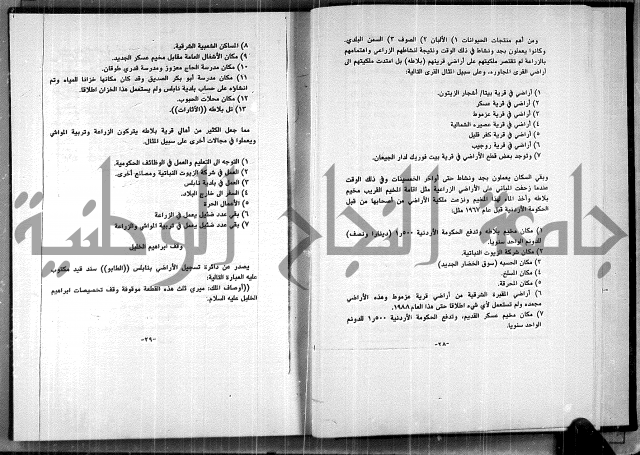 ومن اهم منتجات الحيوانات ١) الألبان ٢) الصوف ٣) السمن البلدي.
وكانوا يعملون بجد ونشاط في ذلك الوقت ونتيجة لنشاطهم الزراعي واهتمامهم
بالزراعة لم تقتصر ملكيتهم على أراضي قريتهم (بلاطه) بل امتدت ملكيتهم الى
أراضي القرى المجاوره، وعلى سبيل المثال القرى التالية:
١) أراضي في قرية بيتا/ أشجار الزيتون.
٢) أراضي في قرية عسكر
٣) أراضي في قرية عزموط
٤) أراضي في قرية عصيره الشمالية
٥) أراضي في قرية كفر قليل
٦) أراضي في قرية روجيب
٧) وتوجد بعض قطع الأراضي في قرية بيت فوريك لدار الجيعان.
وبقي السكان يعملون بجد ونشاط حتى أواخر الخمسينات وفي ذلك الوقت
عندما زحفت المباني على الأراضي الزراعية مثل اقامة المخيم القريب مخيم
بلاطه وأخذ الماء المخيم ونزعت ملكية الأراضي من أصحابها من قبل
الحكومة الأردنية قبل عام ١٩٦٧ مثل:
١) مكان مخيم بلاطه وتدفع الحكومة الأردنية ١٫٥٠٠ (دينارا ونصف)
للدونم الواحد سنويا.
٢) مكان شركة الزيوت النباتية.
٣) مكان الحسبه (سوق الخضار الجديد)
٤) مكان المسلخ.
٥) مكان المحرقة.
٦) أراضي المقبرة الشرقية من أراضي قرية عزموط وهذه الأراضي
مجمده ولم تستعمل لأي شيء اطلاقا حتى هذا العام ١٩٨٨.
٧) مكان مخيم عسكر القديم، وتدفع الحكومة الأردنية ١٫٥٠٠ للدونم
الواحد سنويا.
-٢٨-
٨) المساكن الشعبية الشرقية.
٩) مكان الأشغال العامة مقابل مخيم عسكر الجديد.
١٠) مكان مدرسة الحاج معزوز ومدرسة قدري طوقان.
١١) مكان مدرسة أبو بكر الصديق وقد كان مكانها خزانا للمياه وتم
انشاؤه على حساب بلدية نابلس ولم يستعمل هذا الخزان اطلاقا.
١٢) مكان محلات الحبوب.
١٣) تل بلاطه ((الأثارات)).
مما جعل الكثير من أهالي قرية بلاطه يتركون الزراعة وتربية المواشي
ويعملوا في مجالات أخرى على سبيل المثال.
١) التوجه الى التعليم والعمل في الوظائف الحكومية.
٢) العمل في شركة الزيوت النباتية ومصانع أخرى.
٣) العمل في بلدية نابلس
٤) السفر الى خارج البلاد.
٥) الأعمال الحرة
٦) بقي عدد ضئيل يعمل في الزراعة
٧) بقي عدد ضئيل يعمل في تربية المواشي والزراعة
وقف ابراهيم الخليل
يصدر عن دائرة تسجيل الأراضي بنابلس ((الطابو)) سند قيد مكتوب
عليه العبارة التالية:
((أوصاف الملك: ميري ثلث هذه القطعة موقوفة وقف تخصيصات ابراهيم
الخليل عليه السلام.
-٢٩-
جامعة النجاح الوطنية